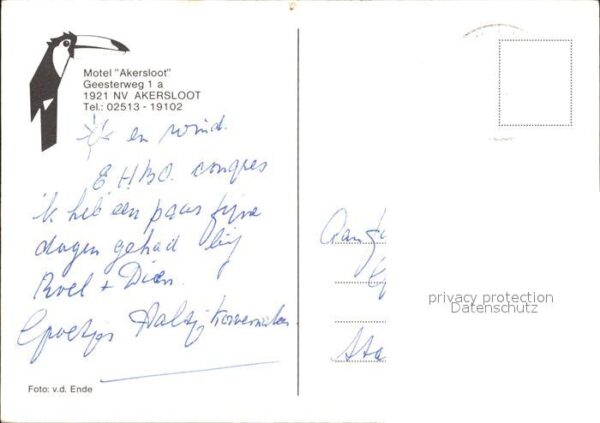 Motel "Akersloot"
Geesterweg 1 a
1921 NV AKERSLOOT
Tel.: 02513 - 19102
en wind.
E.H.B.O. congres
ik heb een paar fijne
dagen gehad bij
Roel + Dien.
Groetjes
Foto: v.d. Ende
Aan
privacy protection
Datenschutz